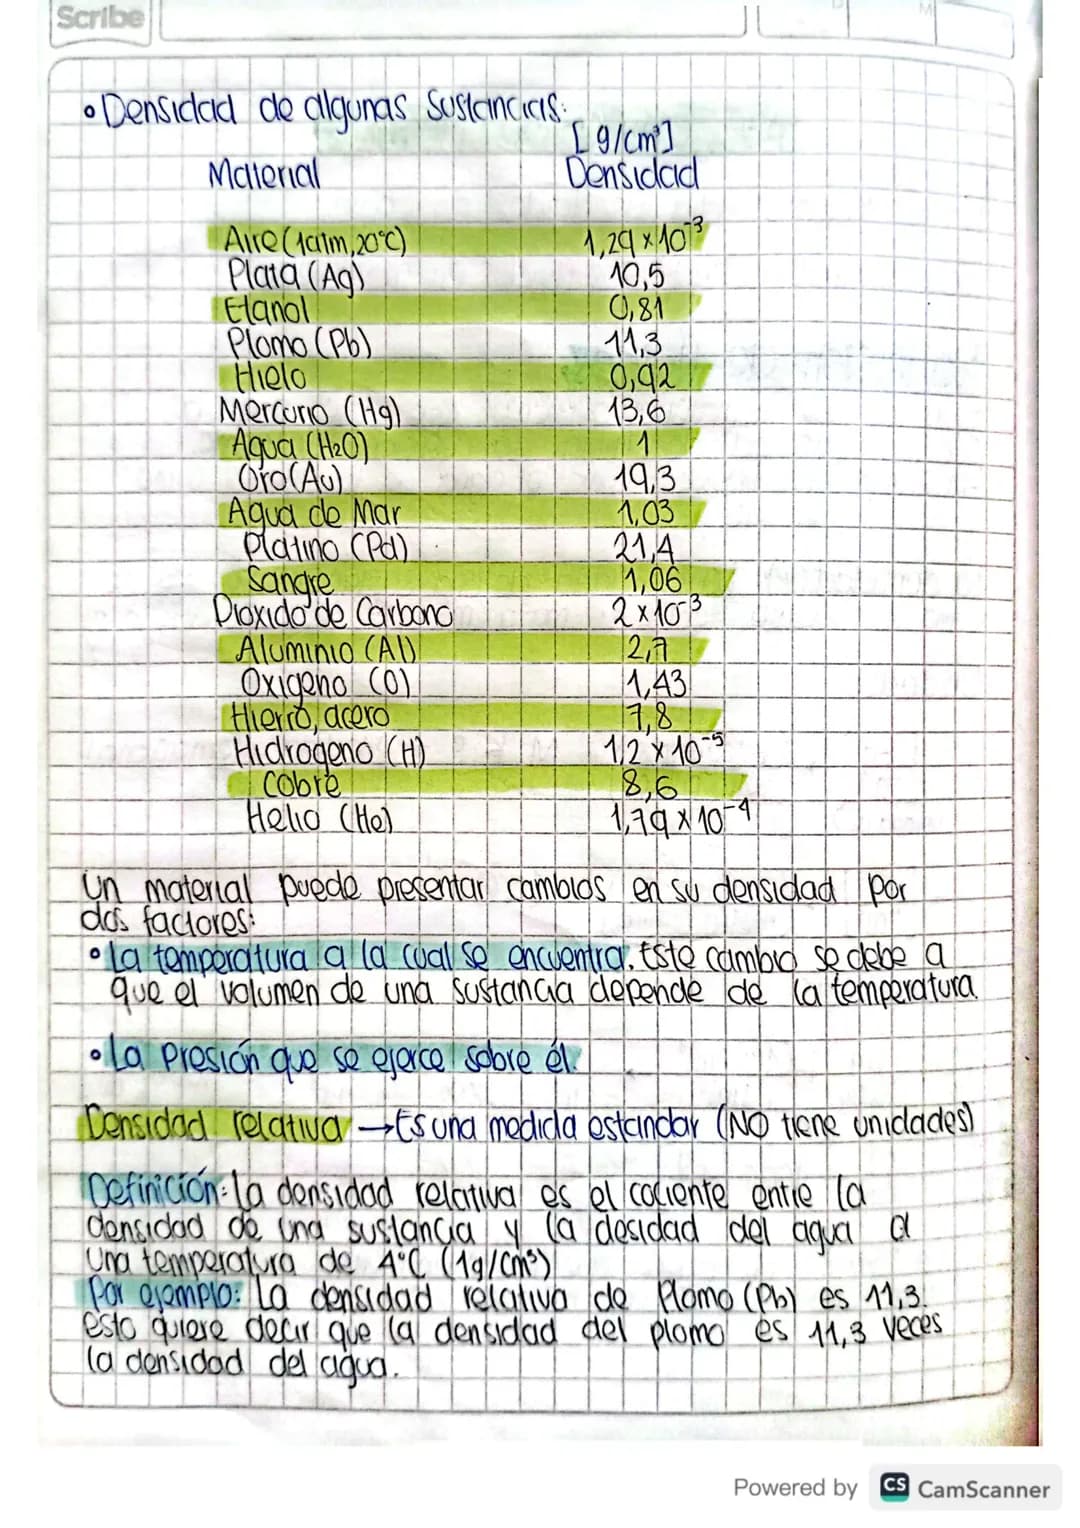 Scribe
• Densidad de algunas Sustancias:
[g/cm³]
Material Densidad
Aire (1atm, 20°C) 1,29 x 10⁻³
Plata (Ag) 10,5
Etanol 0,81
Plomo (Pb) 11,3
Hielo 0,92
Mercurio (Hg) 13,6
Agua (H₂O) 1
Oro (Au) 19,3
Agua de Mar 1,03
Platino (Pd) 21,4
Sangre 1,06
Dioxido de Carbono 2 x 10⁻³
Aluminio (Al) 2,7
Oxigeno (O) 1,43
Hierro, acero 7,8
Hidrogeno (H) 1,2 x 10⁻⁵
Cobre 8,6
Helio (He) 1,79 x 10⁻⁴
Un material puede presentar cambios en su densidad por
dos factores:
• La temperatura a la cual se encuentra. Este cambio se debe a
que el volumen de una sustancia depende de la temperatura.
• La Presión que se ejerce sobre él.
Densidad relativa → Es una medida estandar (NO tiene unidades)
Definición: La densidad relativa es el cociente entre la
densidad de una sustancia y la desidad del agua a
una temperatura de 4°C (1g/cm³)
Por ejemplo: La densidad relativa de Plomo (Pb) es 11,3.
esto quiere decir que la densidad del plomo es 11,3 veces
la densidad del agua.
Powered by CS CamScanner